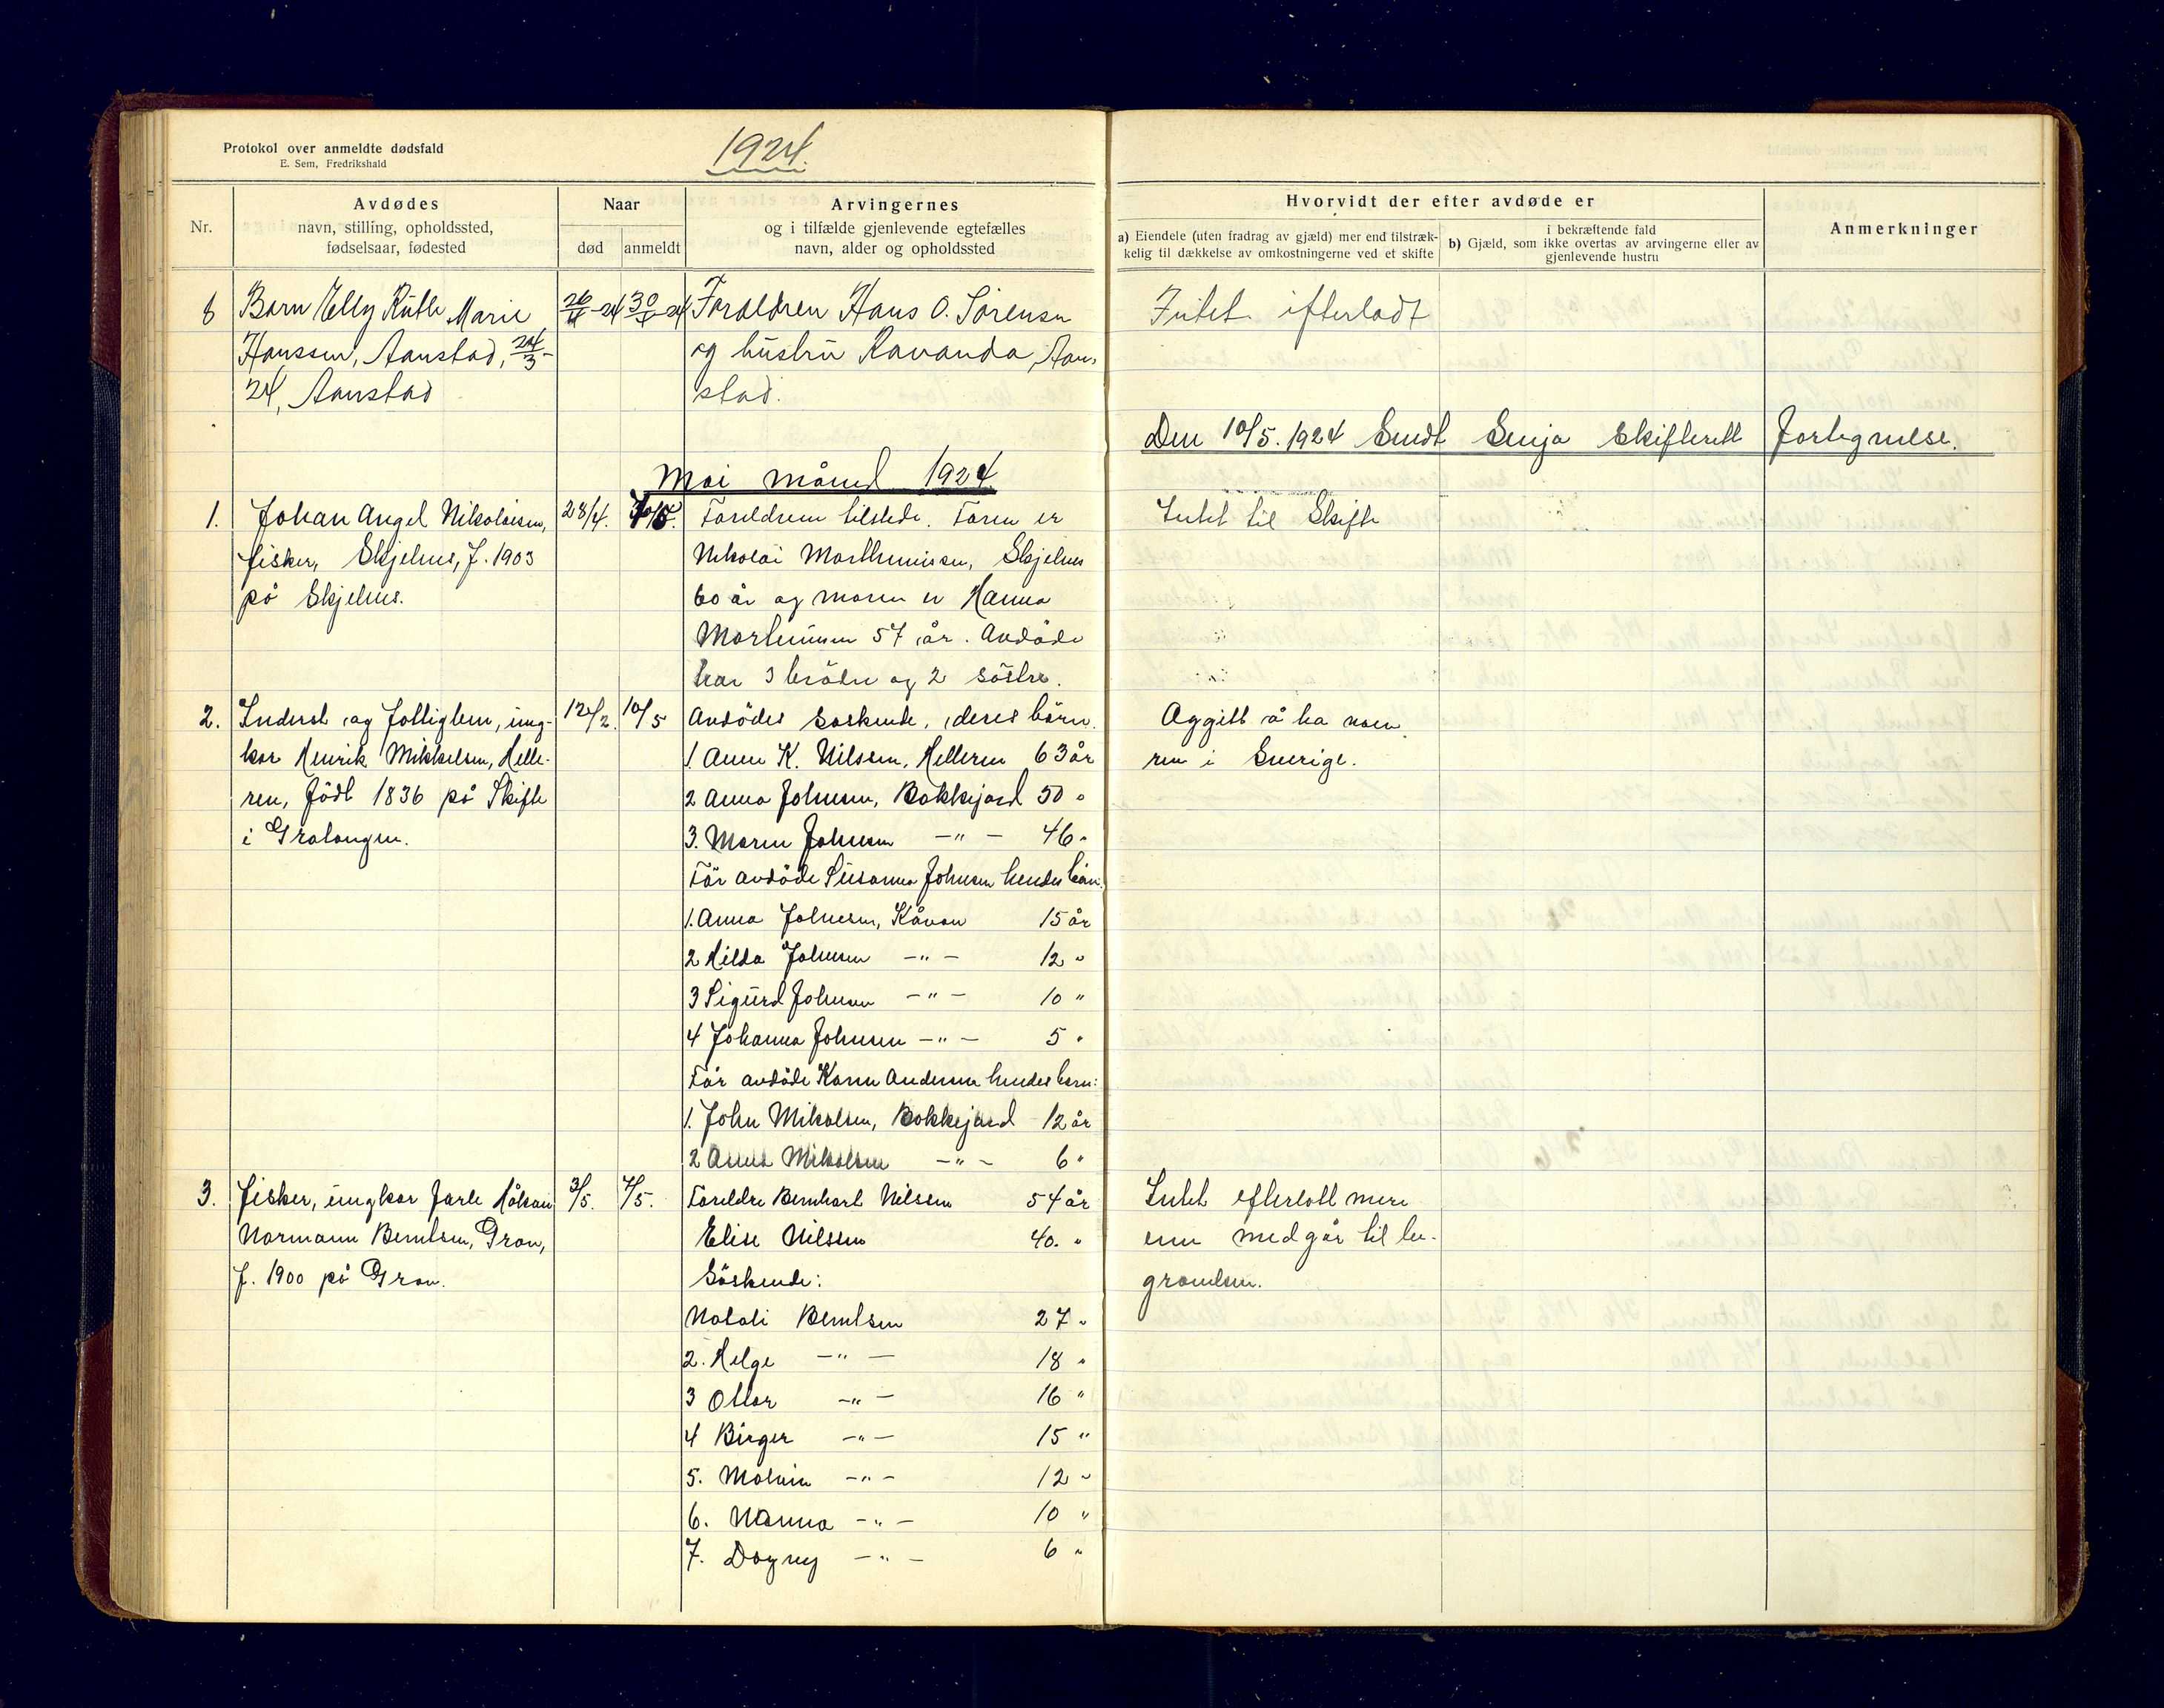 Protokol over anmeldte dødsfald
E. Sem, Fredrikshald
1924.
Nr.
Avdødes
navn, stilling, opholdssted,
fødselsaar, fødested
Naar
død
anmeldt
Arvingernes
og i tilfælde gjenlevende egtefælles
navn, alder og opholdssted
Hvorvidt der efter avdøde er
a) Eiendele (uten fradrag av gjæld) mer end tilstræk-
kelig til dækkelse av omkostningerne ved et skifte
i bekræftende fald
b) Gjæld, som ikke overtas av arvingerne eller av
gjenlevende hustru
Anmerkninger
8 Barn Elly Ruth Marie
Hanssen, Aanstad, 24/3-
24, Aanstad
26/4-24 30/4-24
Foraldren Hans O. Sörensen
og hustru Ravanda, Aan-
stad.
Intet efterladt
Den 10/5. 1924 Sendt Senja Skifterett Fortegnelse.
Mai måned 1924
1. Johan Angel Nikolaisen,
fisker, Skjelnes, f. 1903
på Skjelnes.
28/4.
Foreldrene tilstede. Faren er
Nikolai Marthinnisen, Skjelnes
60 år og moren er Hanna
57 år. Avdöde
har 3 brödre og 2 söstre.
Intet til Skifte
2. Inderst og fattiglem, ung-
kar Henrik Mikkelsen, Helle-
ren, Född 1836 på Skifte
i Gratangen.
12/2. 10/5
Avdödes soskende, deres börn.
1. Anne K. Nilssen, Helleren 63 år
2 Anna Johnsen, Bakkejord 50 "
3. Maren Johnsen -"- 46 "
För avdöde Susanna Johnsen hendes börn.
1. Anna Johnsen, Kåvan 15 år
2 Hilda Johnsen -"- 12 "
3 Sigurd Johnsen -"- 10 "
4 Johanna Johnsen -"- 5 "
För avdöde Karen Andersen hendes barn:
1. John Mikalsen, Bakkejord 12 år
2 Mikalsen -"- 6 "
Aggitt å ha vaen
ren i Sverige.
3. Fisker, ungkar Jarle Håkon
Normann Berntsen, Grav,
f. 1900 på Grav.
3/5. 7/5.
Foreldre Bernhart Nilssen 54 år
Elise Nilssen 40. "
Söskende:
Natali Berntsen 27 "
2. Helge -"- 18 "
3 Ottar -"- 16 "
4 Birger -"- 15 "
5. Malvin -"- 12 "
6. Nanna -"- 10 "
7. Dagny -"- 6 "
Intet efterlatt mere
enn medgår til be-
gravelsen.